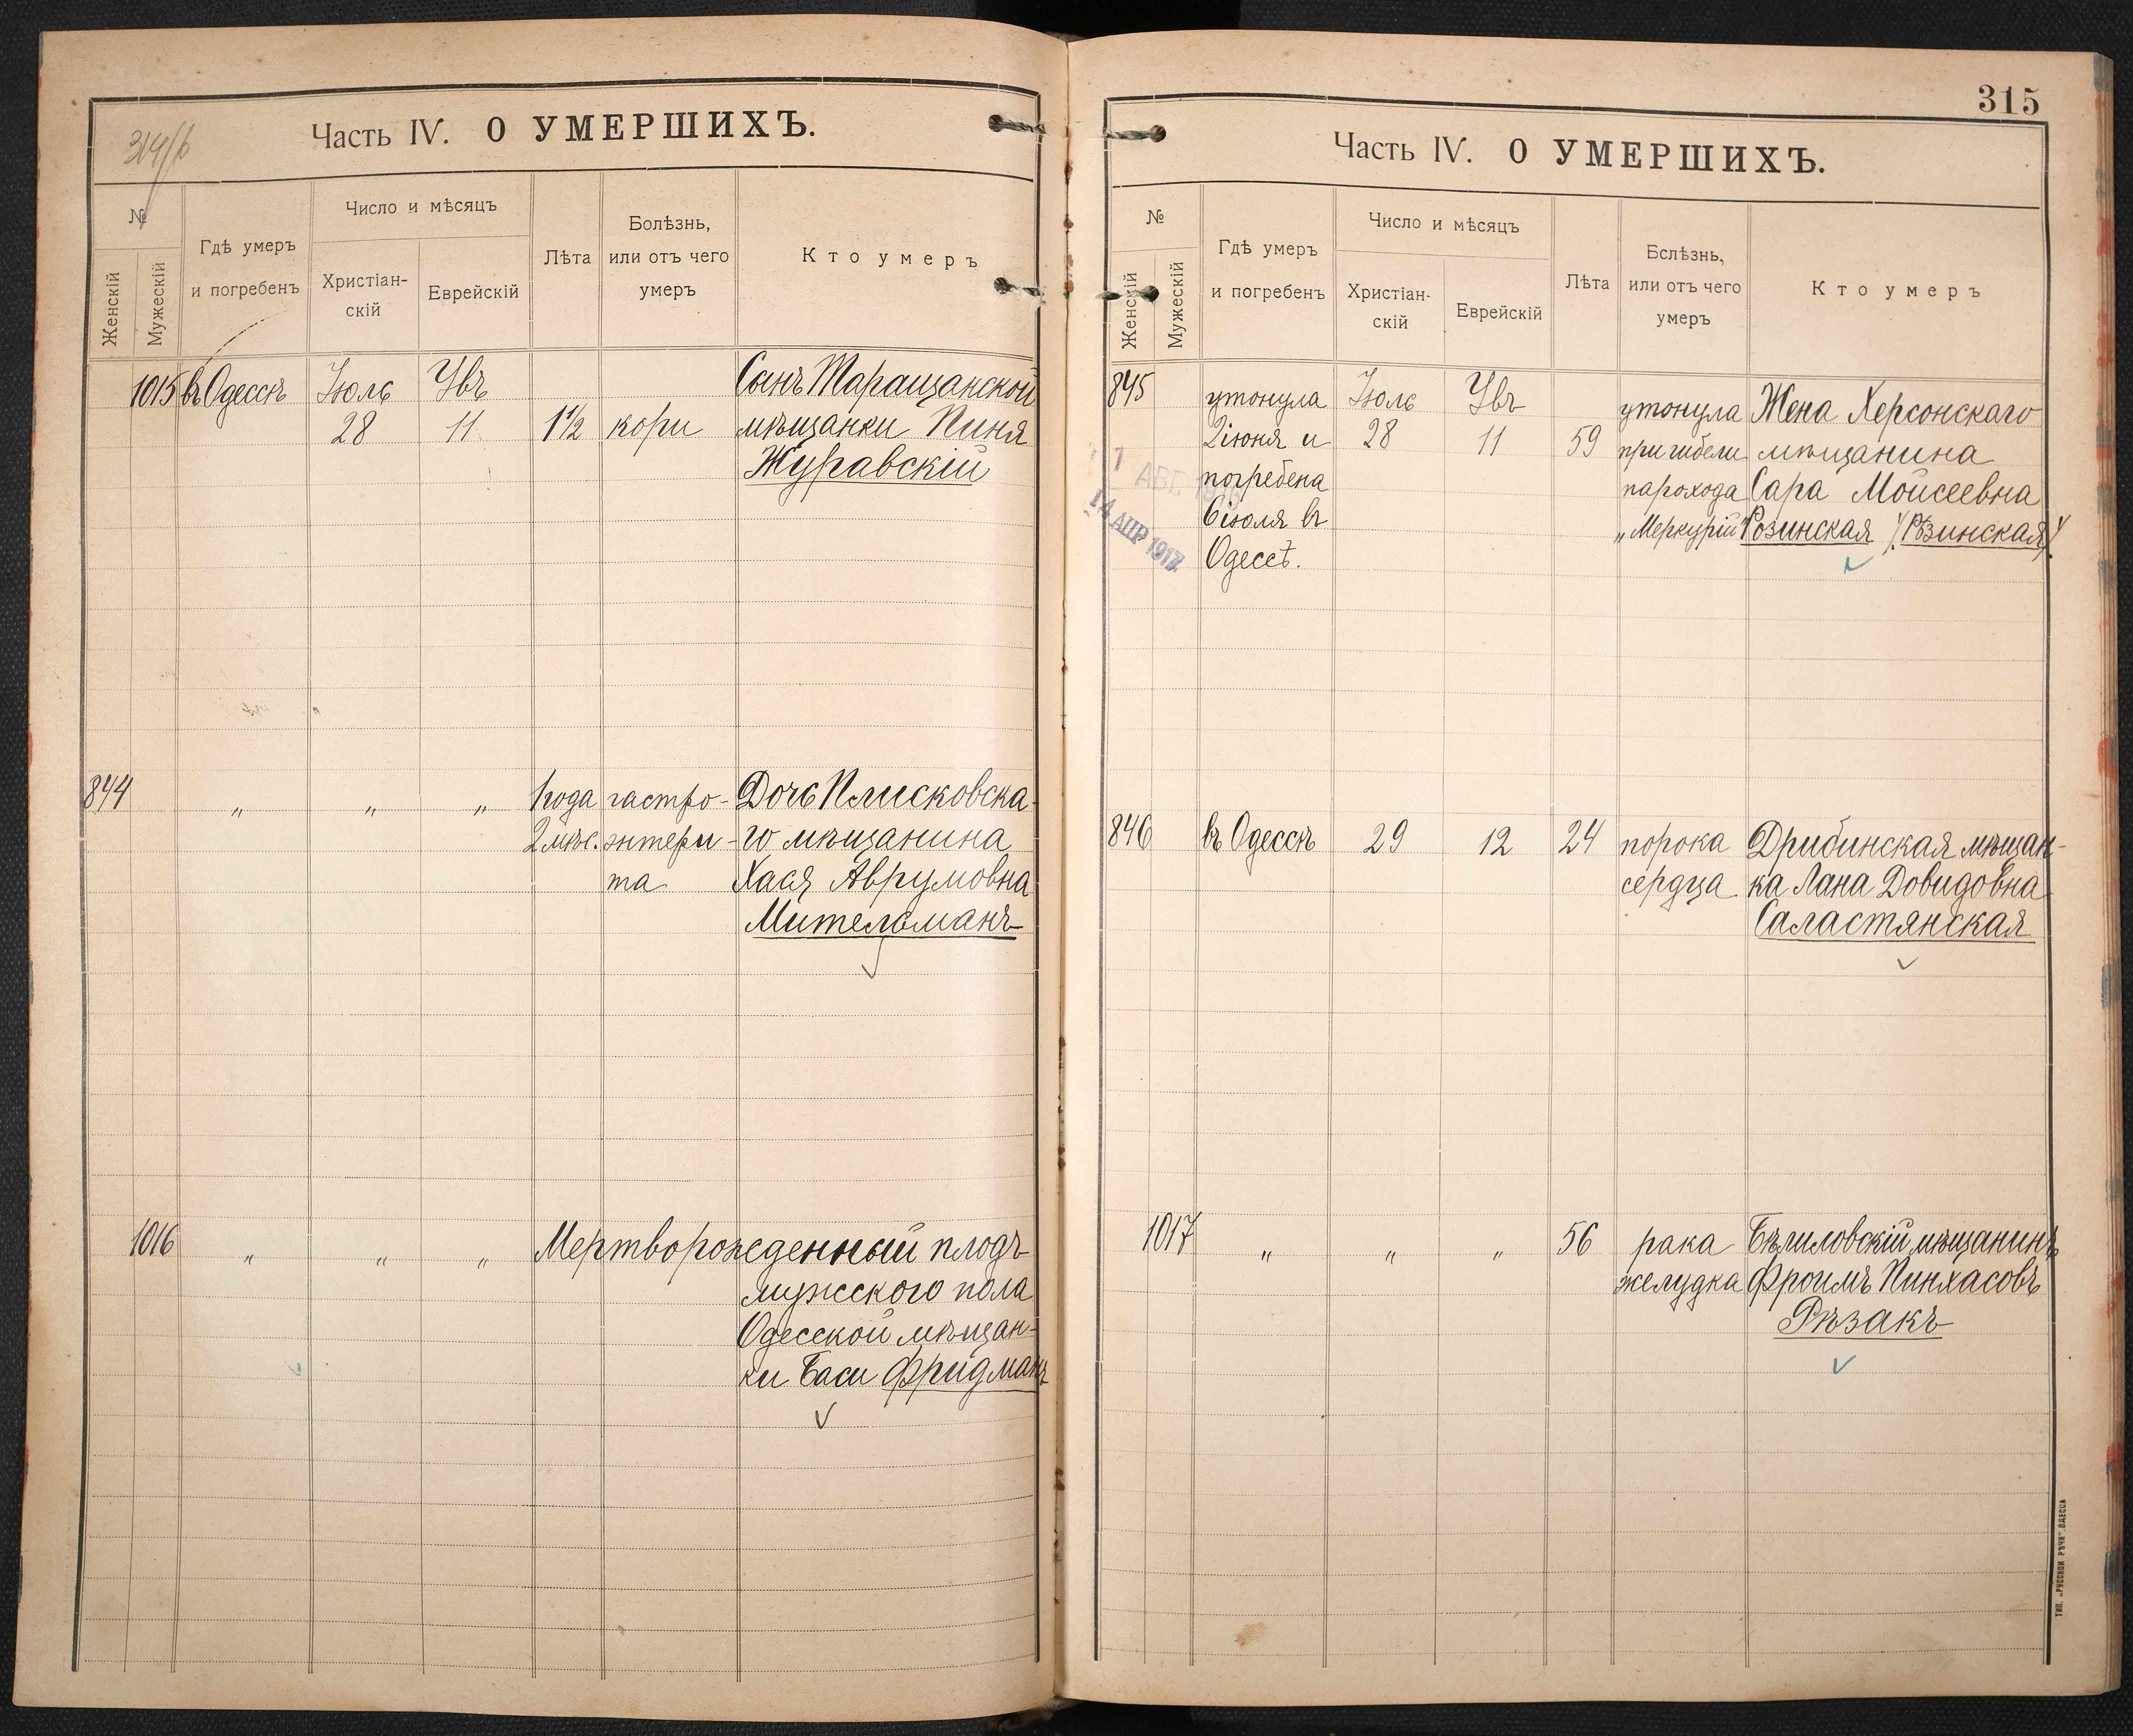 314/б
Часть IV. О УМЕРШИХЪ.
№
Женскій
Мужескій
Гдѣ умеръ
и погребенъ
Число и мѣсяцъ
Христіан-
скій
Еврейскій
Лѣта
Болѣзнь,
или отъ чего
умеръ
Кто умеръ
1015 въ Одессѣ ІюльУвъ Сынъ Таращанской
28 11 1½ кори мѣщанки Пиня
Журавскій
844 „ „ „ 1 года гастро- Дочь Плисковска-
2 мѣс. энтери- го мѣщанина
та Хася Аврумовна
Мительманъ
1016 „ „ „ Мертворожденный плодъ
мужского пола
Одесской мѣщан-
ки Баси Фридманъ
315
Часть IV. О УМЕРШИХЪ.
№
Женскій
Мужескій
Гдѣ умеръ
и погребенъ
Число и мѣсяцъ
Христіан-
скій
Еврейскій
Лѣта
Бслѣзнь,
или отъ чего
умеръ
Кто умеръ
845 утонула Іюль Увъ утонула Жена Херсонскаго
2 іюня и 28 11 59 при гибели мѣщанина
погребена парохода Сара Мойсеевна
6 іюля въ „Меркурій“ Розинская /Рѣзинская/
Одессѣ.
АВГ
14 АПР 1917
846 въ Одессѣ 29 12 24 порока Дрибинская мѣщан-
сердца ка Лана Довидовна
Саластянская
1017 „ „ „ 56 рака Бѣлиловскій мѣщанинъ
желудка Фроимъ Пинхасовъ
Рѣзакъ
ТИП. „РУССКОЙ РѢЧИ“ ОДЕССА